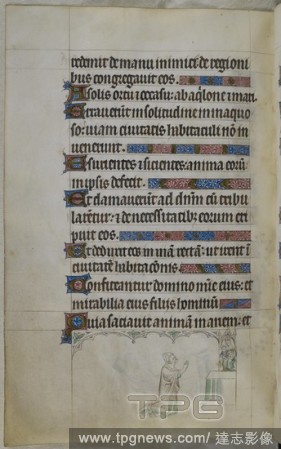 redemit de manu inimici: de regioni
bus congregavit eos.
A solis ortu ⁊ occasu: ab aq̃lone ⁊ mari.
Erraverunt in solitudine in inaquo
so: viam civitatis habitac̃li nõ in
venerunt.
Esurientes ⁊ sicientes: anima eoꝝ
in ipsis defecit.
Et clamaverunt ad dñm cũ tribu
larẽtur: ⁊ de necessitatibꝫ eorum eri
puit eos.
Et deduxit eos in viam rectã: ut irent ĩ
civitatẽ habitac̃onis.
Confiteantur domino mĩe eius: et
mirabilia eius filiis hominũ
Quia saciavit animam inanem: et
TPG
www.tpgnews.com / 達志影像